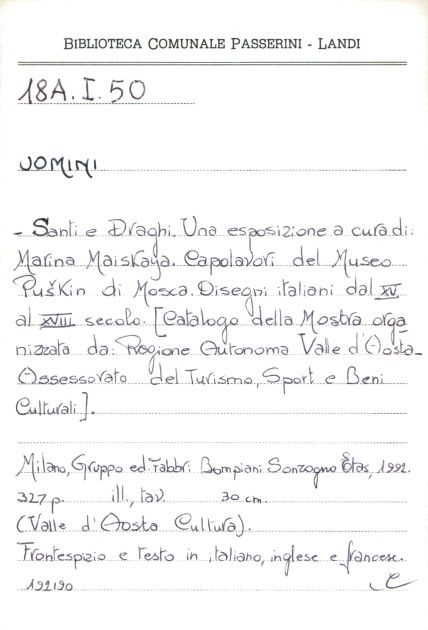 BIBLIOTECA COMUNALE PASSERINI - LANDI
18A.I.50
UOMINI
- Santi e Draghi. Una esposizione a cura di:
Marina Maiskaya. Capolavori del Museo
Puškin di Mosca. Disegni italiani dal XV
al XVIII secolo. [Catalogo della Mostra orga
nizzata da: Regione Autonoma Valle d'Aosta-
Assessorato del Turismo, Sport e Beni
Culturali].
Milano, Gruppo ed. Fabbri Bompiani Sonzogno Etas, 1992.
327 p. ill., tav. 30 cm.
(Valle d'Aosta Cultura).
Frontespizio e testo in italiano, inglese e francese.
192190